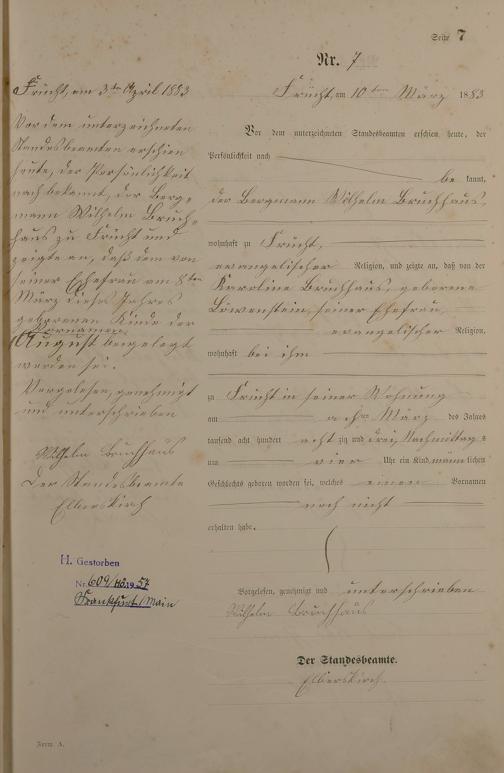 Seite 7
Nr. 7
Frücht, am 10ten März 1883
Vor dem unterzeichneten Standesbeamten erschien heute, der
Persönlichkeit nach
bekannt,
der Bergmann Wilhelm Bruchhaus,
wohnhaft zu Frücht,
evangelischer Religion, und zeigte an, daß von der
Karoline Bruchhaus, geborene
Löwenstein, seiner Ehefrau,
evangelischer Religion,
wohnhaft bei ihm
zu Frücht in seiner Wohnung
am achten März des Jahres
tausend acht hundert achtzig und drei, Nachmittags
um vier Uhr ein Kind männlichen
Geschlechts geboren worden sei, welches einen Vornamen
noch nicht
erhalten habe.
Vorgelesen, genehmigt und unterschrieben
Wilhelm Bruchhaus
Der Standesbeamte.
Elberskirch
Frücht, am 3ten April 1883
Vor dem unterzeichneten
Standesbeamten erschien
heute, der Persönlichkeit
nach bekannt, der Berg-
mann Wilhelm Bruch-
haus zu Frücht und
zeigte an, daß dem von
seiner Ehefrau am 8ten
März dieses Jahres
geborenen Kinde der
Vornamen
August beigelegt
worden sei.
Vorgelesen, genehmigt
und unterschrieben
Wilhelm Bruchhaus
Der Standesbeamte
Elberskirch
H. Gestorben
Nr. 609/ 1957
Frankfurt/Main
Form A.